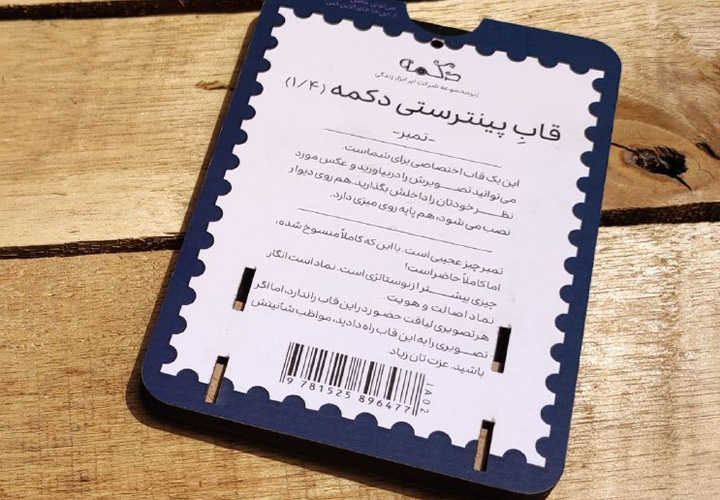 دکمه
زیرمجموعه شرکت ابر ابزار زندگی
قابِ پینترستی دکمه (۱/۴)
-تمبر-
این یک قاب اختصاصی برای شماست.
می‌توانید تصویرش را دربیاورید و عکس مورد
نظر خودتان را داخلش بگذارید. هم روی دیوار
نصب می‌شود، هم پایه روی میزی دارد.
تمبر چیز عجیبی است. با این که کاملاً منسوخ شده،
اما کاملاً حاضر است!
چیزی بیشتر از نوستالژی است. نماد است انگار
نماد اصالت و هویت.
هر تصویری لیاقت حضور در این قاب را ندارد، اما اگر
تصویری را به این قاب راه دادید، مواظب شأنیتش
باشید. عزت‌تان زیاد.
9 781525 896477
IA02